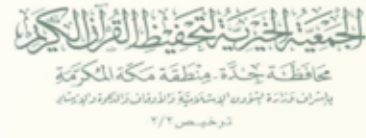 الجمعية الخيرية لتحفيظ القرآن الكريم
محافظة جدة - منطقة مكة المكرمة
بإشراف وزارة الشؤون الإسلامية والأوقاف والدعوة والإرشاد
ترخيص ٢/٢